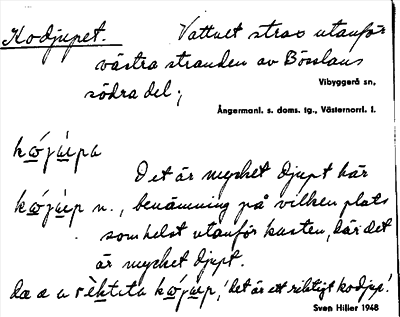 Kodjupet. Vattnet strax utanför
västra stranden av Bösslans
södra del;
Vibyggerå sn,
Ångermanl. s. doms. tg., Västernorrl. l.
kὼjúpa
Det är mycket djupt här
kώjùp n., benämning på vilken plats
somhelst utanför kusten, där det
är mycket djupt.
dæ æ u rèktita kώjùp, 'det är ett riktigt kodjup!'
Sven Hiller 1948